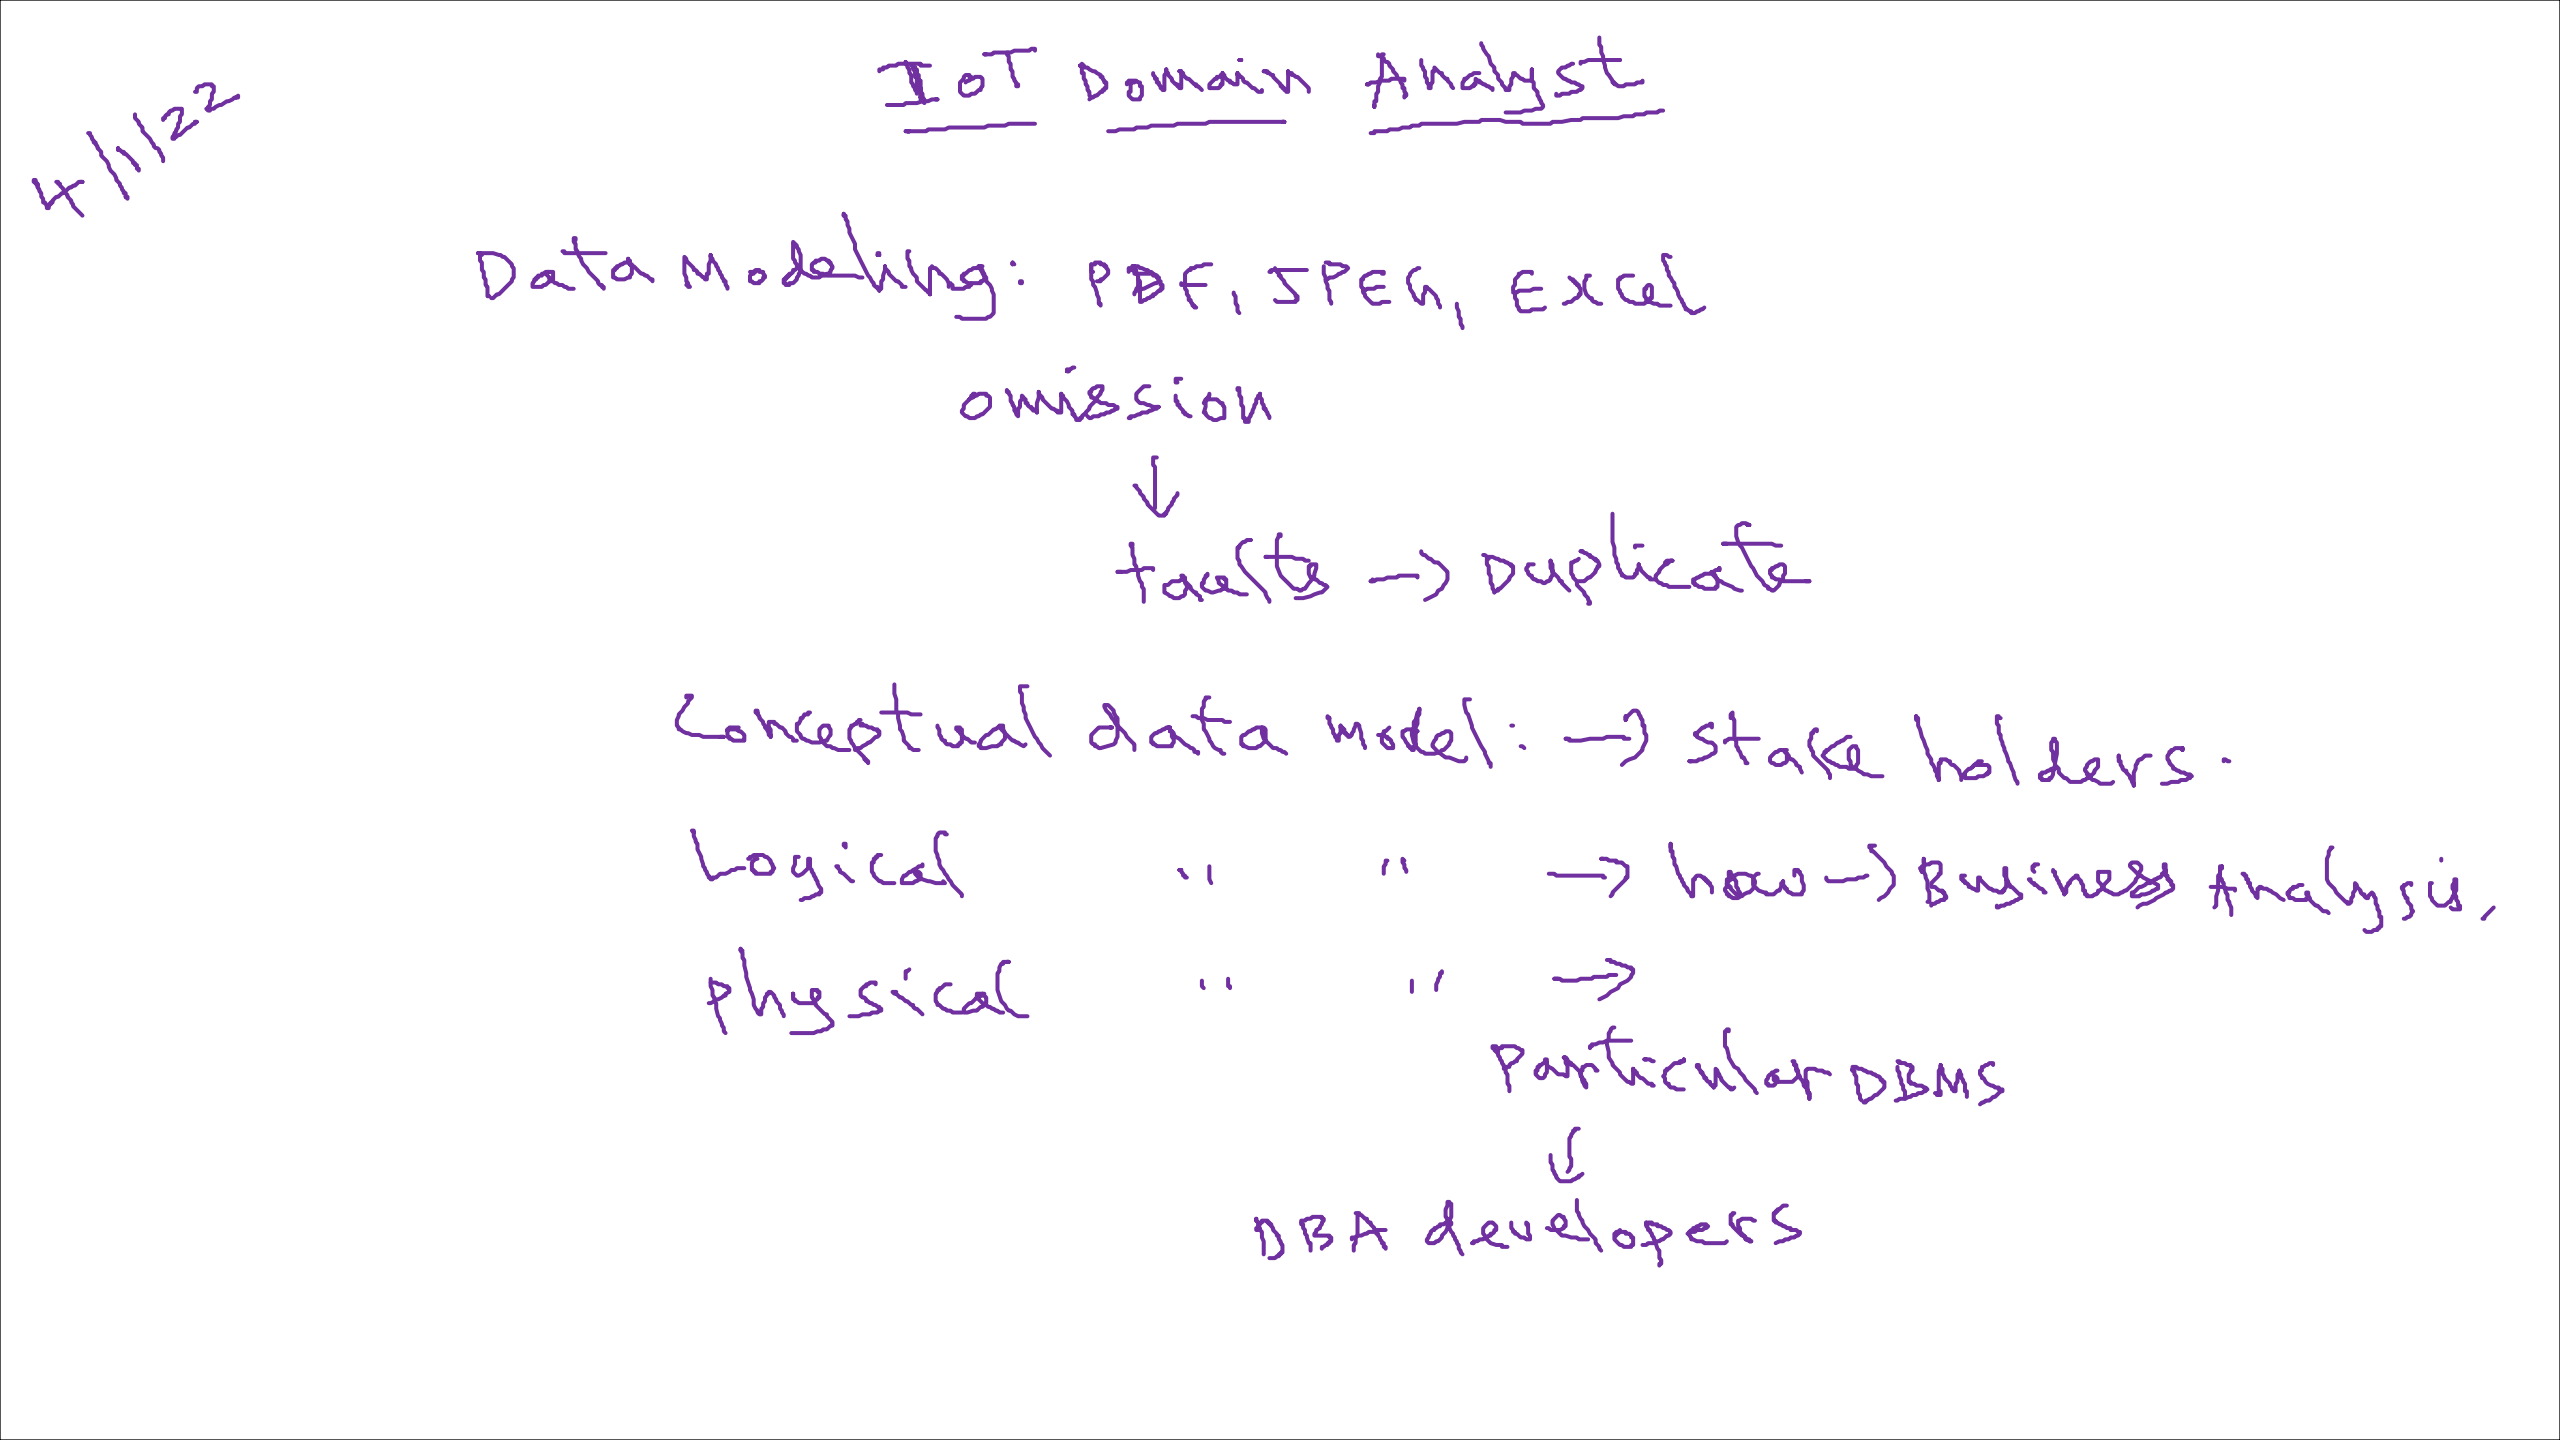 IoT Domain Analyst
4/1/22
Data Modeling: PDF, JPEG, Excel
omission
↓
→ Duplicate
Conceptual data model: → stake holders.
Logical " " → how → Business Analysis,
physical " " →
Particular DBMS
↓
DBA developers